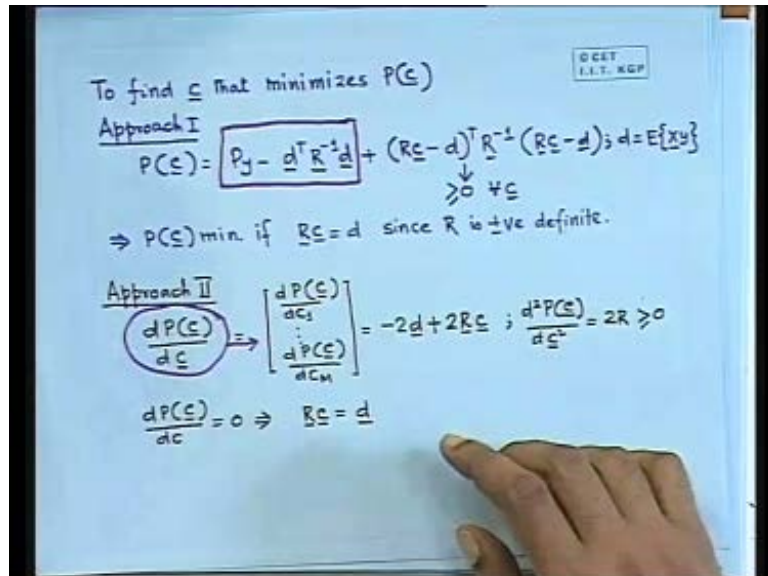 © CET
I.I.T. KGP
To find c̲ that minimizes P(c̲)
Approach I
P(c̲) = Py - d̲ᵀ R̲⁻¹ d̲ + (Rc̲ - d)ᵀ R̲⁻¹ (R̲c̲ - d̲); d = E{x̲y}
↓
≥0 ∀c̲
⇒ P(c̲) min. if R̲c̲ = d since R is +ve definite.
Approach II
dP(c̲)/dc̲ = [dP(c̲)/dc₁ ⋮ dP(c̲)/dc_M] = -2d̲ + 2R̲c̲ ; d²P(c̲)/dc̲² = 2R ≥ 0
dP(c̲)/dc = 0 ⇒ R̲c̲ = d̲